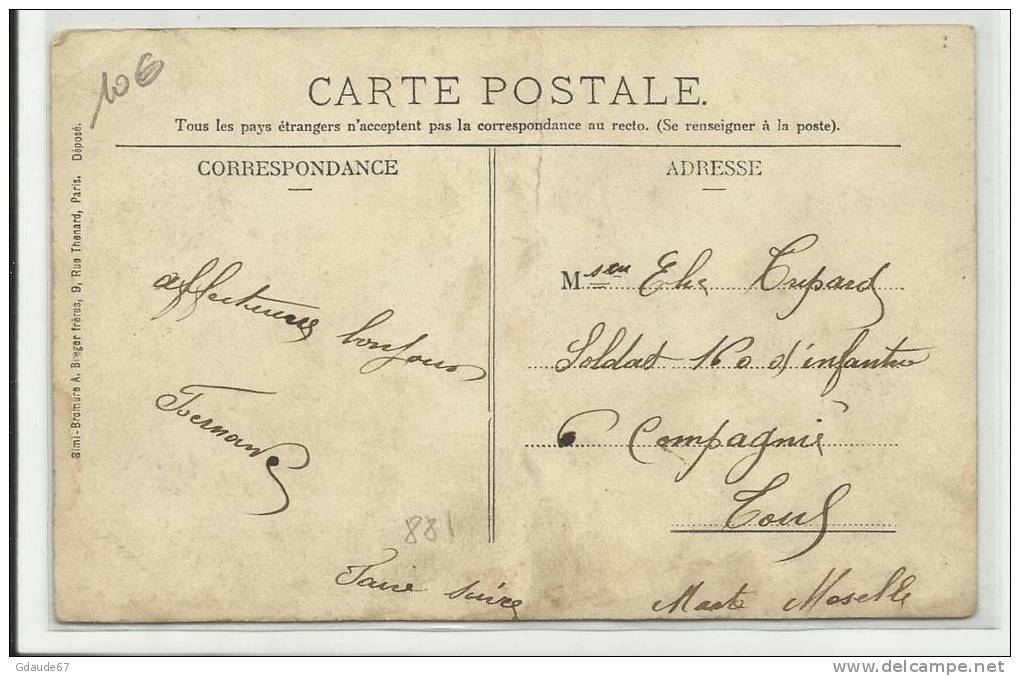 10€
CARTE POSTALE.
Tous les pays étrangers n'acceptent pas la correspondance au recto. (Se renseigner à la poste).
CORRESPONDANCE
ADRESSE
Simi-Bromure A. Breger frères, 9, Rue Thenard, Paris. Déposé.
affectueux bonjour
Fernand
881
Faire suivre
Msieu Elie Trupard
Soldat 160 d'infantrie
6 Compagnie
Toul
Meurte Moselle
Gdaude67
www.delcampe.net